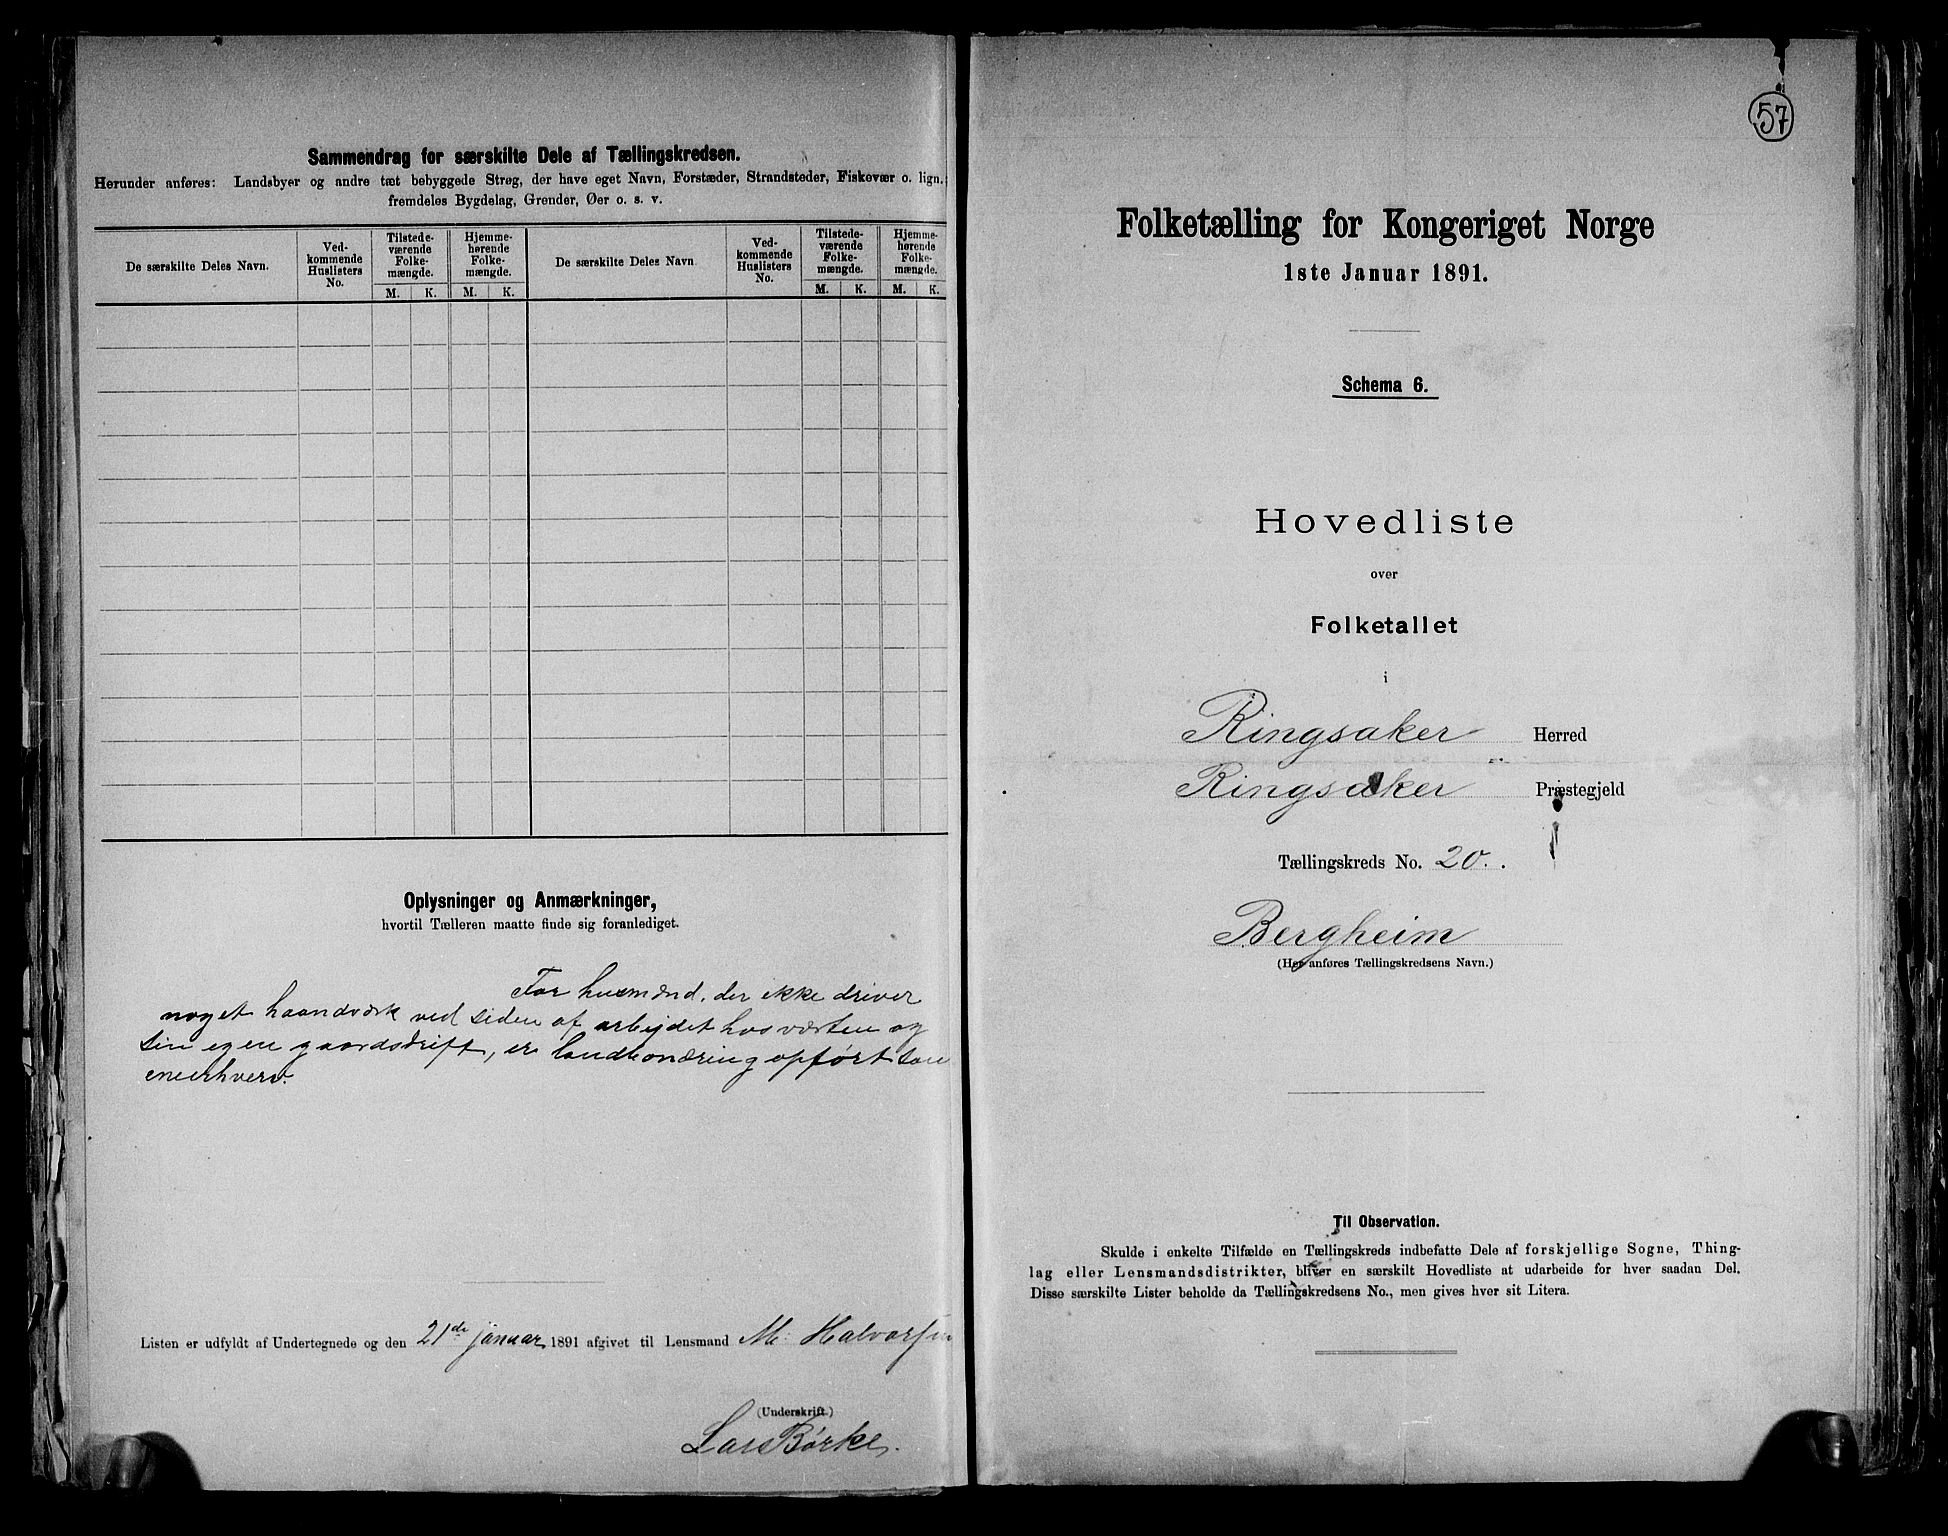 Sammendrag for særskilte Dele af Tællingskredsen.
Herunder anføres: Landsbyer og andre tæt bebyggede Strøg, der have eget Navn, Forstæder, Strandsteder, Fiskevær o. lign.
fremdeles Bygdelag, Grender, Øer o. s. v.
De særskilte Deles Navn.
Ved-
kommende
Huslisters
No.
Tilstede-
værende
Folke-
mængde.
Hjemme-
hørende
Folke-
mængde.
M. K. M. K.
De særskilte Deles Navn
Ved-
kommende
Huslisters
No.
Tilstede-
værende
Folke-
mængde.
Hjemme-
hørende
Folke-
mængde.
M. K. M. K.
Oplysninger og Anmærkninger,
hvortil Tælleren maatte finde sig foranlediget.
For husmænd, der ikke driver
noget haandværk ved siden af arbejdet hos værten og
sin egen gaardsdrift, er landbonæring opført som
eneerhverv.
Listen er udfyldt af Undertegnede og den 21de januar 1891 afgivet til Lensmand M. Halvorsen
(Underskrift.)
Lars Børke.
57
Folketælling for Kongeriget Norge
1ste Januar 1891.
Schema 6.
Hovedliste
over
Folketallet
i
Ringsaker Herred
Ringsaker Præstegjeld
Tællingskreds No. 20.
Bergheim
(Her anføres Tællingskredsens Navn.)
Til Observation.
Skulde i enkelte Tilfælde en Tællingskreds indbefatte Dele af forskjellige Sogne, Thing-
lag eller Lensmandsdistrikter, bliver en særskilt Hovedliste at udarbeide for hver saadan Del.
Disse særskilte Lister beholde da Tællingskredsens No., men gives hver sit Litera.